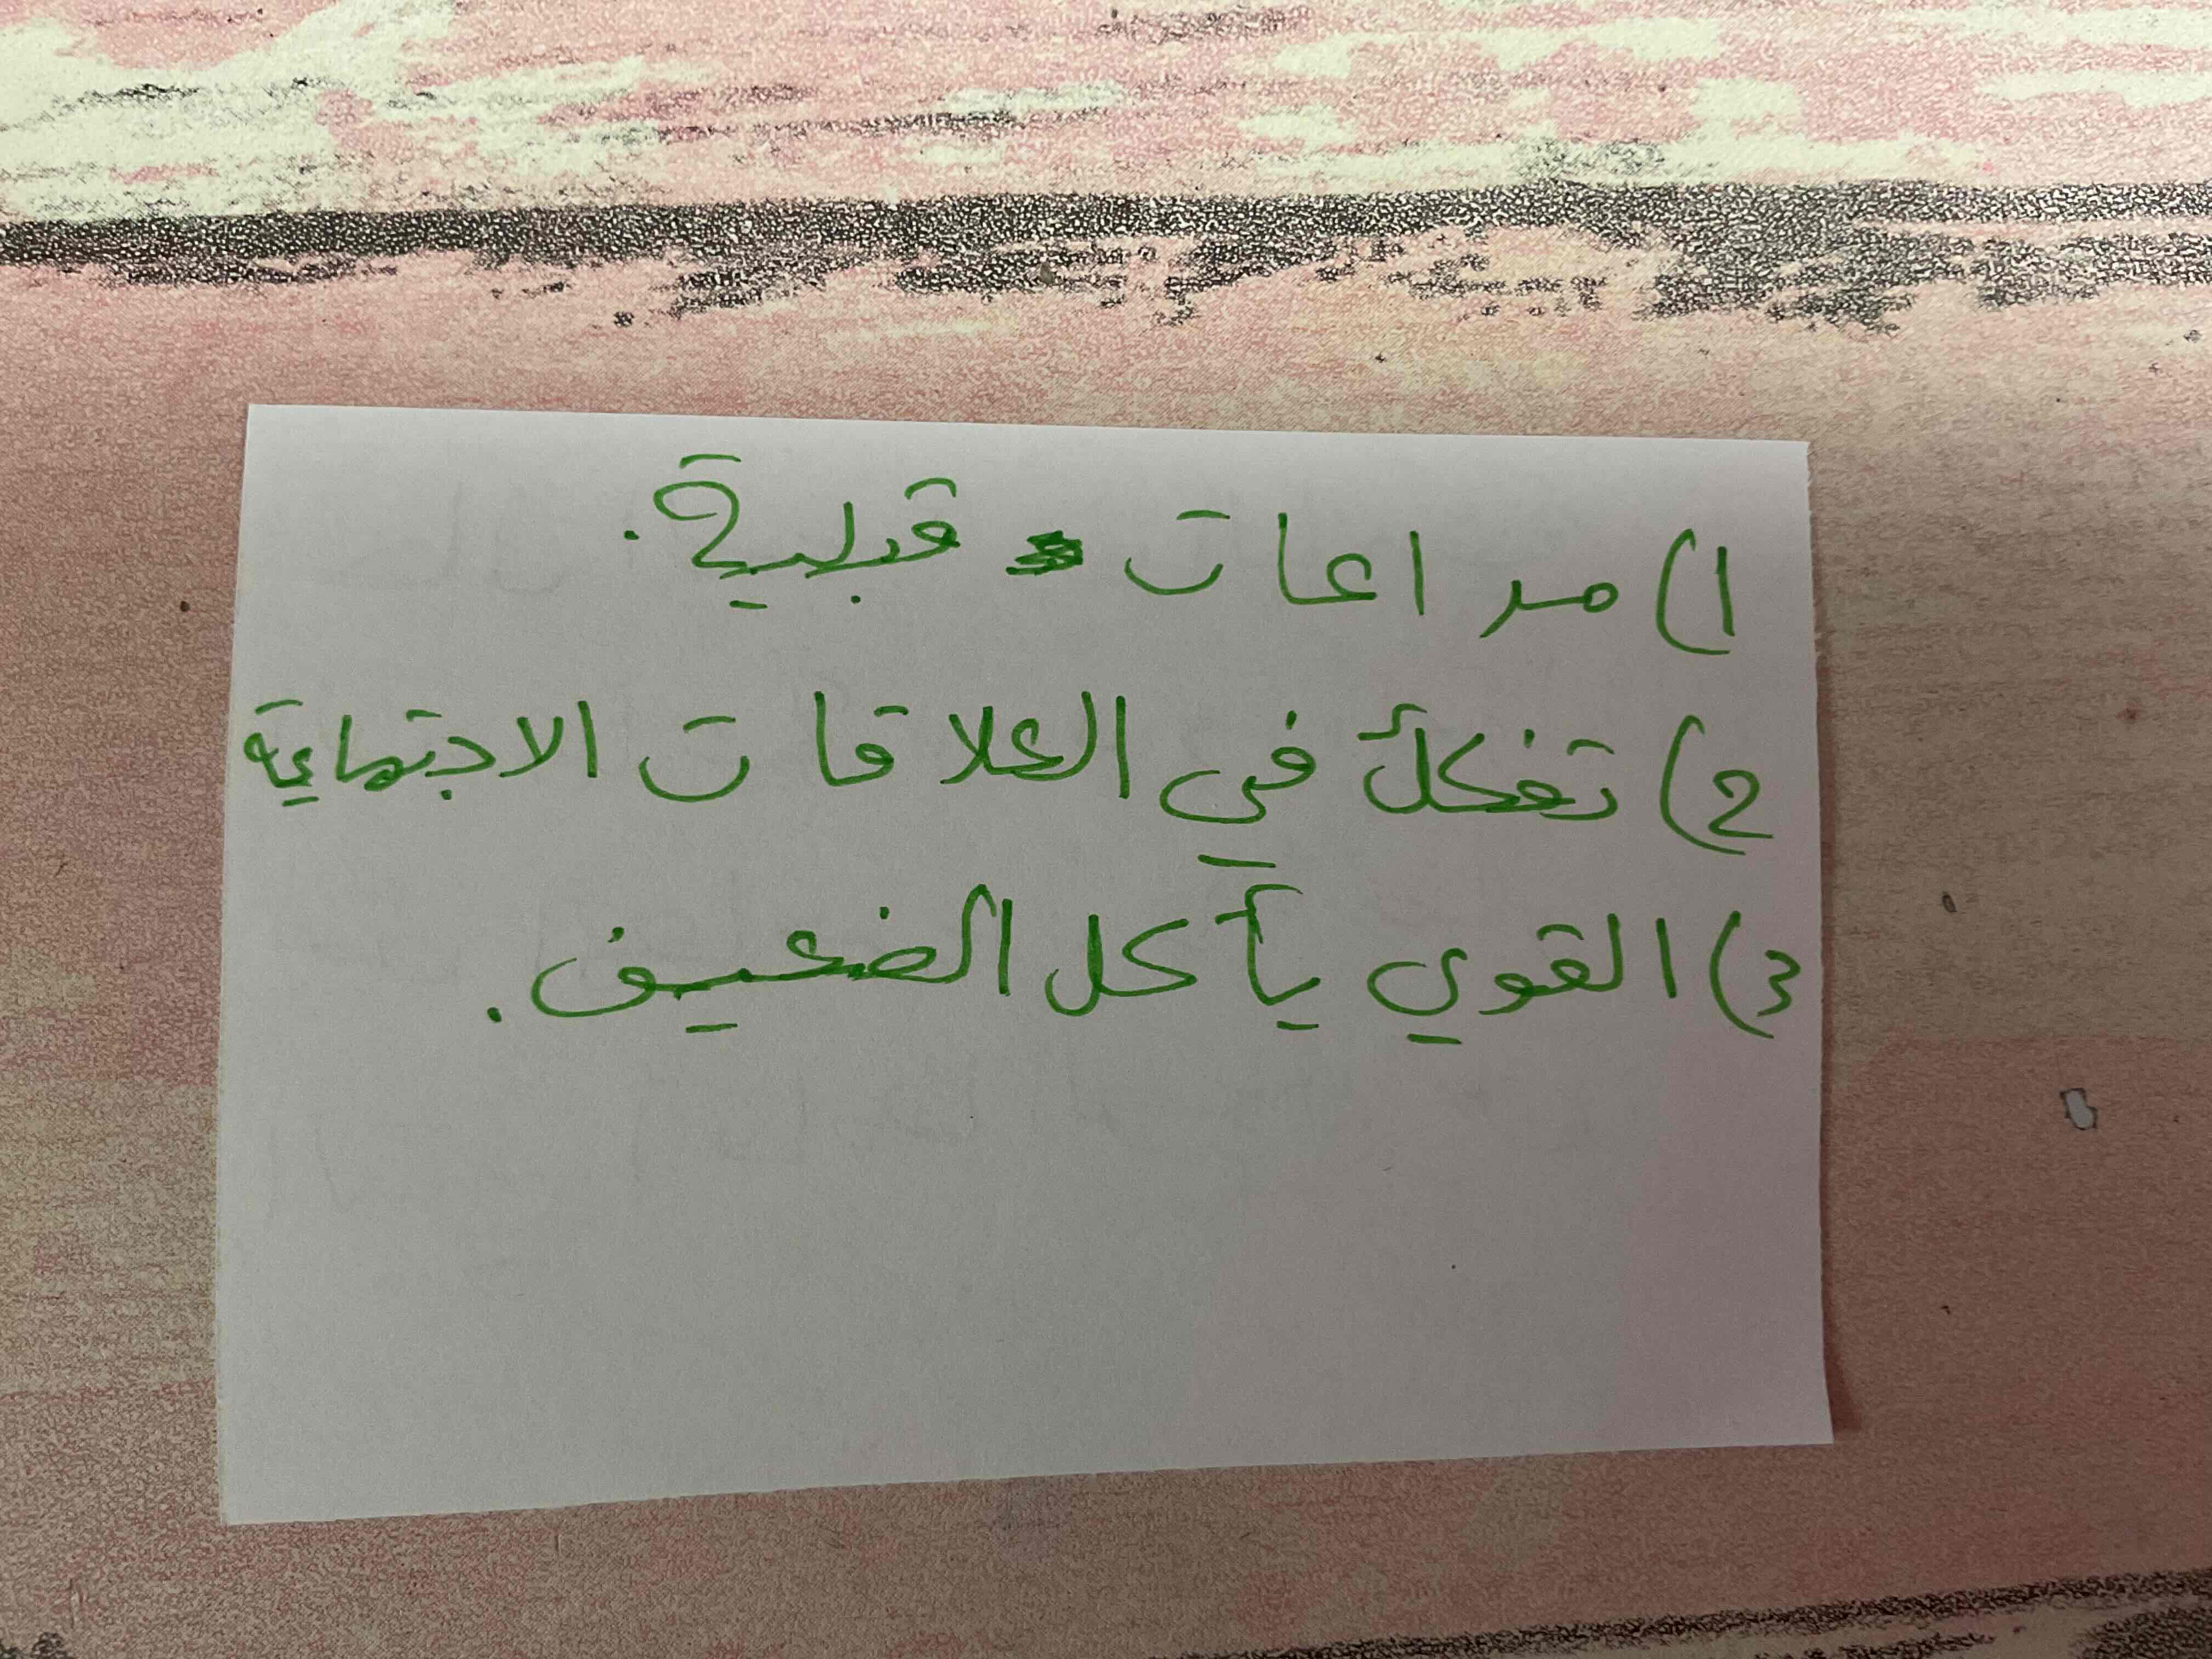 1) مراعات قبلية.
2) تفكك في العلاقات الاجتماعية
3) القوي يأكل الضعيف.